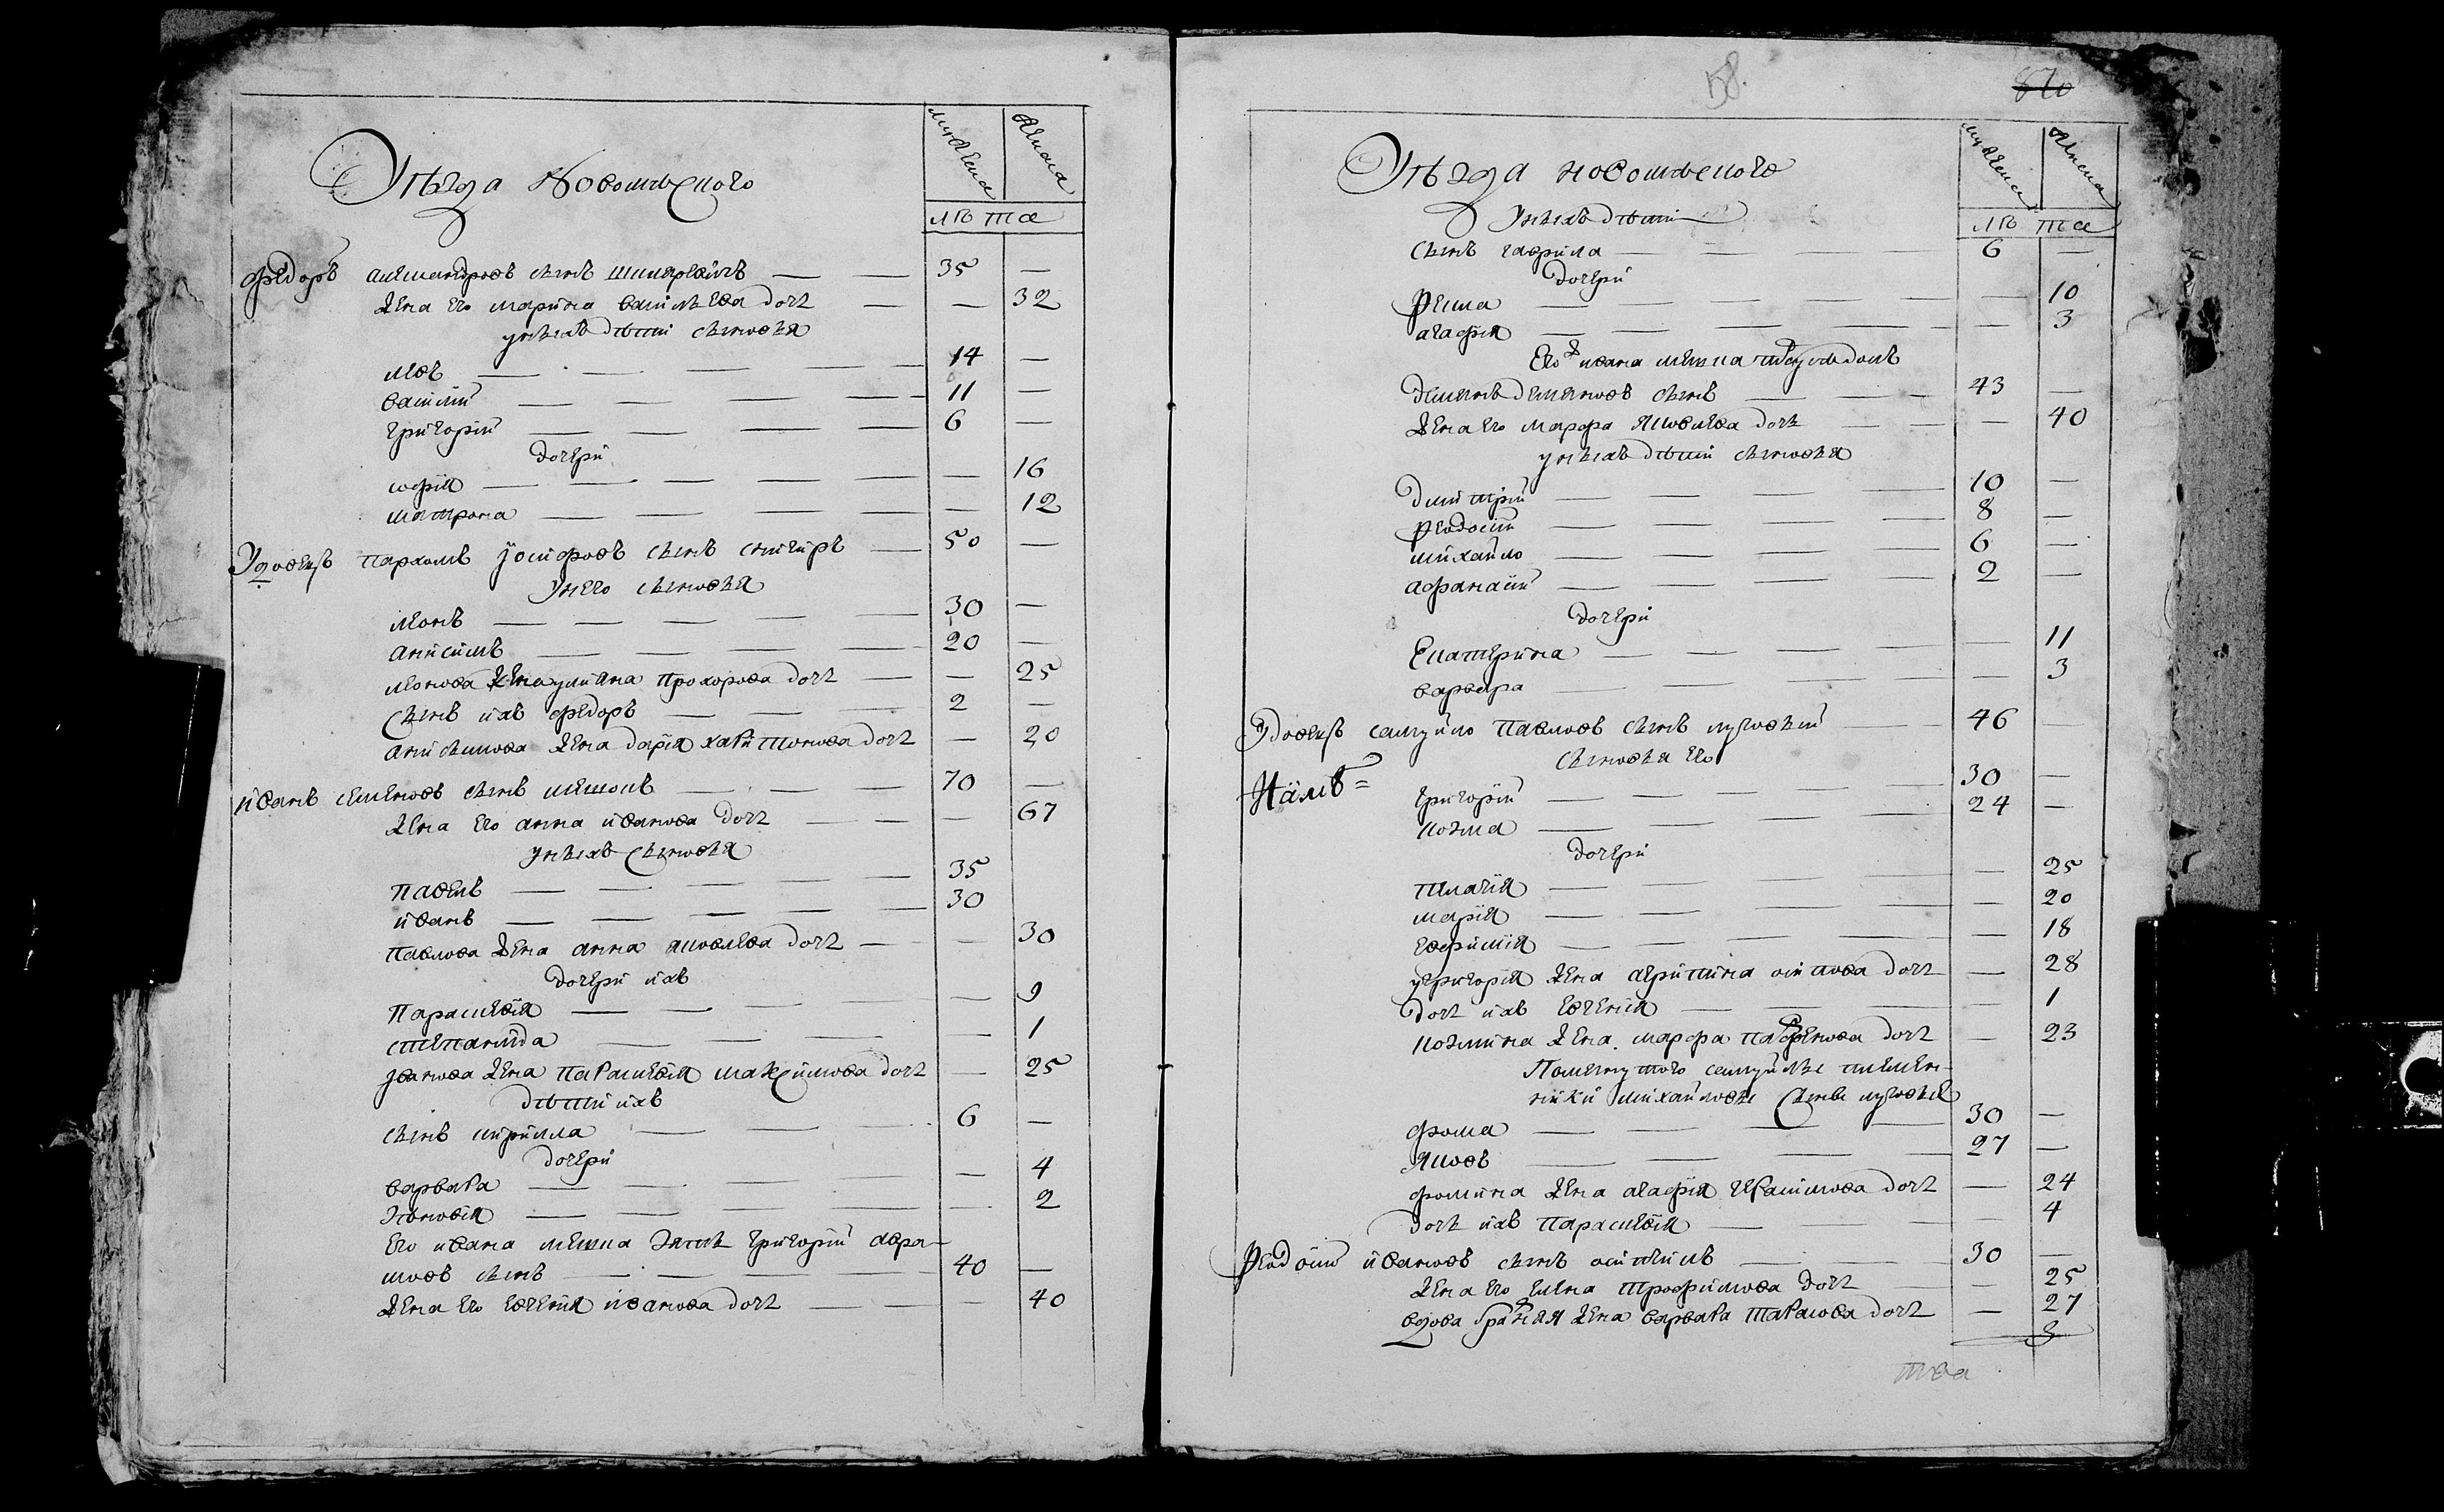 Уѣзда Новомѣского
мужеска
женска
лѣта
Федоръ александровъ сынъ 35 —
жена его марина васильева дочь — 32
унихъ дѣти сыновья
левъ 14 —
василий 11 —
григорий 6 —
дочери
софия — 16
матрона — 12
Удовецъ пархомъ иосифовъ сынъ 50 —
Унего сыновья
леонъ 30 —
анисимъ 20 —
леонова жена улияна прохорова дочь — 25
сынъ ихъ федоръ 2 —
анисимова жена дария харитонова дочь — 20
иванъ семеновъ сынъ 70 —
жена его анна иванова дочь — 67
унихъ сыновья
павелъ 35
иванъ 30
павлова жена анна яковлева дочь — 30
дочери ихъ
параскевия — 9
степанида — 1
иванова жена параскевия максимова дочь — 25
дѣти ихъ
сынъ кирилла 6 —
дочери
варвара — 4
зѣновия — 2
его ивана зять григорий авра-
мовъ сынъ 40 —
жена его евгения иванова дочь — 40
58.
870
Уѣзда новомѣского
мужеска
женска
лѣта
унихъ дѣти
сынъ гаврила 6 —
дочери
фекла — 10
агафия — 3
его ж ивана
демянъ демяновъ сынъ 43 —
жена его марфа яковлева дочь — 40
унихъ дѣти сыновья
димитрий 10 —
феодосий 8 —
михайло 6 —
афанасий 2 —
дочери
екатерина — 11
варвара — 3
Удовецъ самуйло павловъ сынъ 46
сыновья его
григорий 30 —
козма 24 —
дочери
— 25
мария — 20
евфимия — 18
григория жена агрипина осипова дочь — 28
дочь ихъ евгения — 1
козмина жена марфа парфенова дочь — 23
Помянутого самуйлы племен-
ники михайловы сыны
фома 30 —
яковъ 27 —
фомина жена агафия герасимова дочь — 24
дочь ихъ параскевия — 4
феодосий ивановъ сынъ 30 —
жена его елена трофимова дочь — 25
вдова жена варвара тарасова дочь — 27